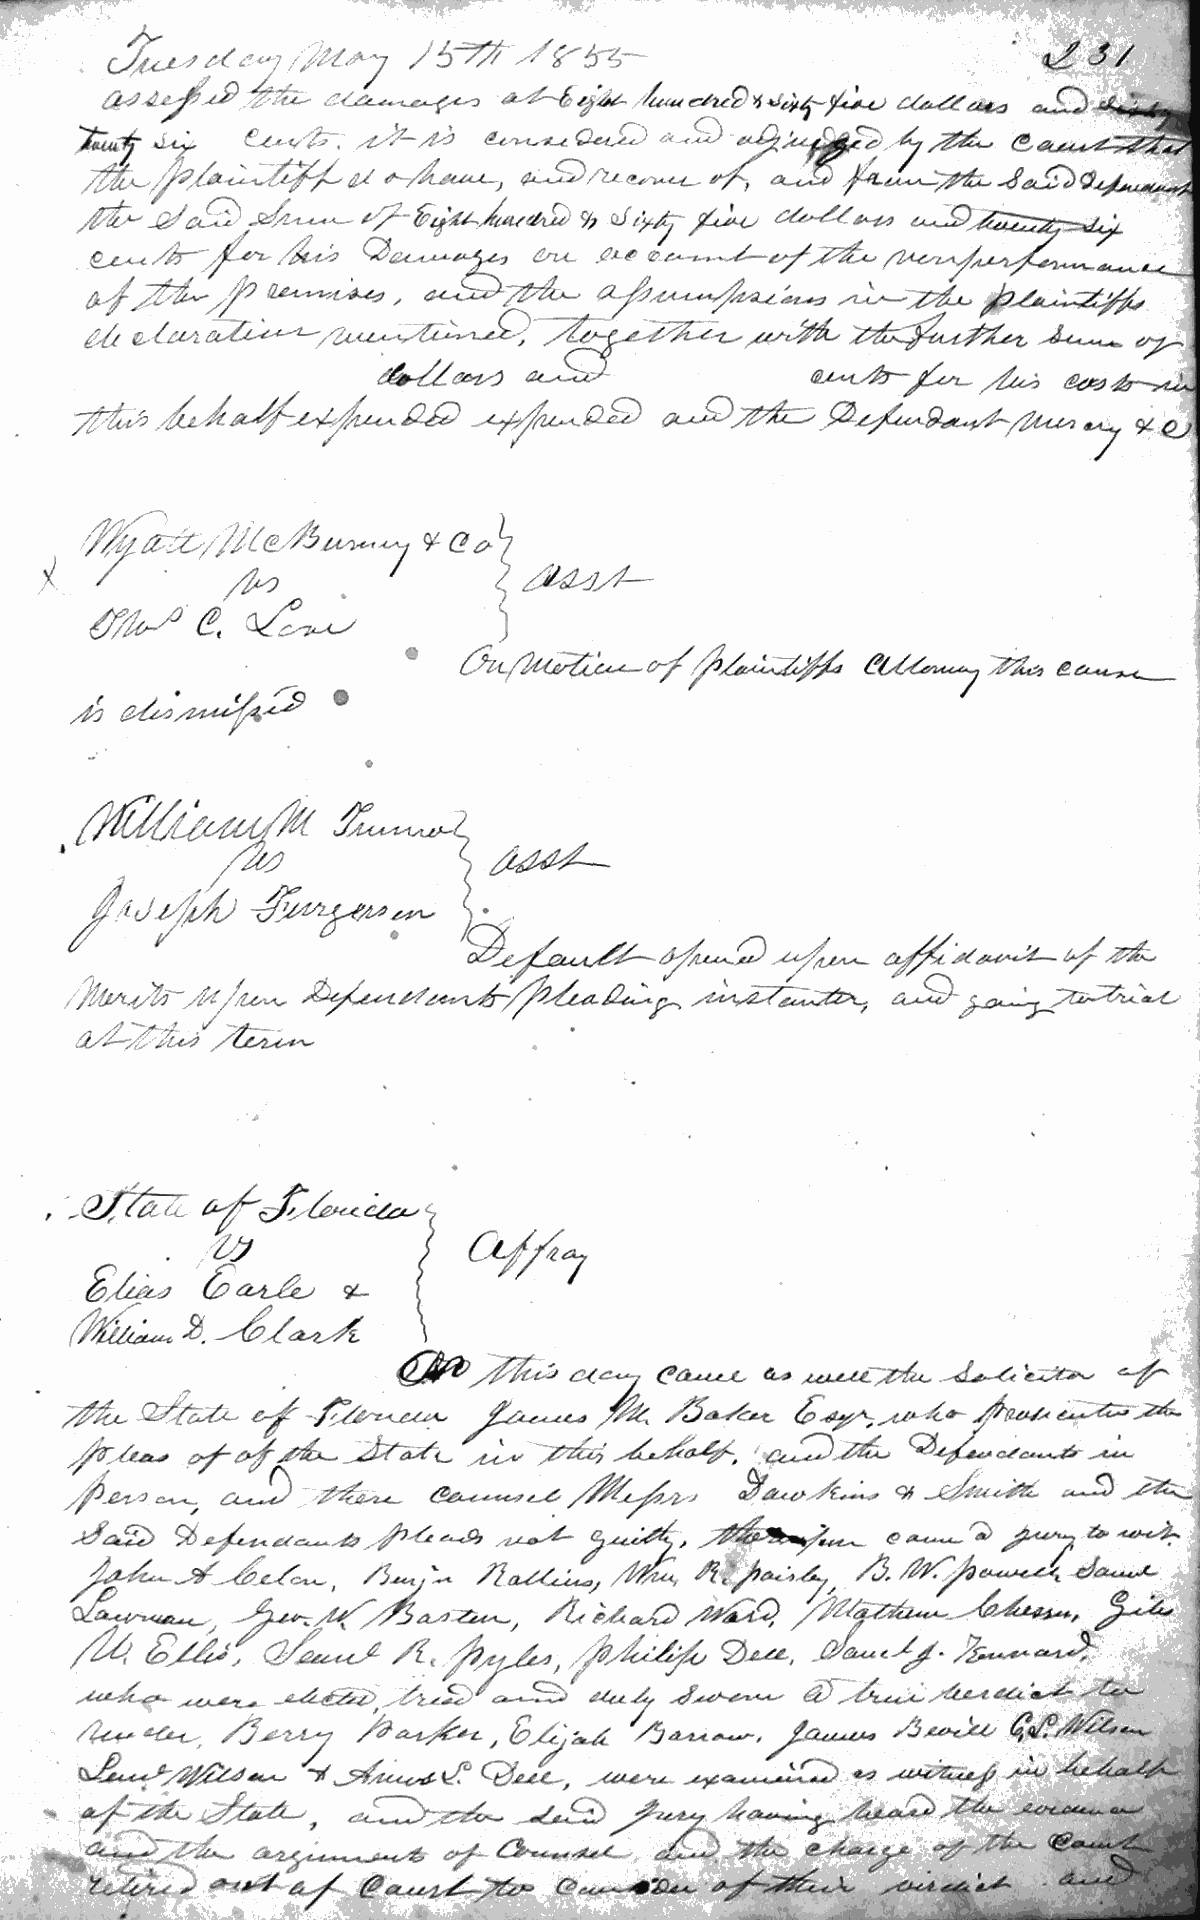 Tuesday May 15th 1855 231
assessed the damages at Eight hundred & sixty five dollars and
twenty six cents. it is considered and adjudged by the Court that
the plaintiff do have, and recover of, and from the Said Defendant
the Said Sum of Eight hundred & Sixty five dollars and twenty six
cents for his Damages on account of the nonperformance
of the premises, and the assumpsions in the plaintiffs
declaration mentioned, together with the further Sum of
dollars and cents for his costs in
this behalf expended expended and the Defendant mercy &c
Wyatt McBurney & Co
vs asst
Thos C. Love
On Motion of plaintiffs Attorney this cause
is dismissed
William M
vs asst
Joseph Furgerson
Default opened upon affidavit of the
Merits upon Defendants pleading instanter, and going to trial
at this term
State of Florida
vs Affray
Elias Earle &
William D. Clark
On this day came as well the Solicitor of
the State of Florida James M. Baker Esqr. who prosecutes the
pleas of of the State in this behalf, and the Defendants in
person, and there counsel Messrs Dawkins & Smith and the
Said Defendants pleads not guilty, thereupon came a jury to wit.
John A Benjn Rollins, Wm R. paisley, B. W. powell Saml
Lawman, Geo. W. Barton, Richard Ward, Mathew Chesser, Giles
U. Ellis, Saml R. pyles, philip Dell, Saml J. Kennard,
who were elected, tried and duly Sworn a true verdict to
render, Berry Parker, Elijah Barrow, James Bevill C. S. Wilson
Leml Wilson & Amos L. Dell, were examined as witness in behalf
of the State, and the said jury having heard the evidence
and the argument of Counsel and the charge of the Court
retired out of Court to consider of their verdict and